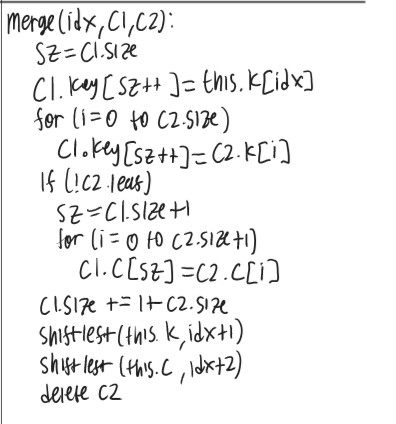 merge(idx, C1, C2):
sz = C1.size
C1.key[sz++] = this.k[idx]
for (i=0 to C2.size)
C1.key[sz++] = C2.k[i]
If (!C2.leaf)
sz = C1.size+1
for (i = 0 to C2.size+1)
C1.C[sz] = C2.C[i]
C1.size += 1+ C2.size
shiftleft(this.k, idx+1)
shiftleft (this.C, idx+2)
delete C2